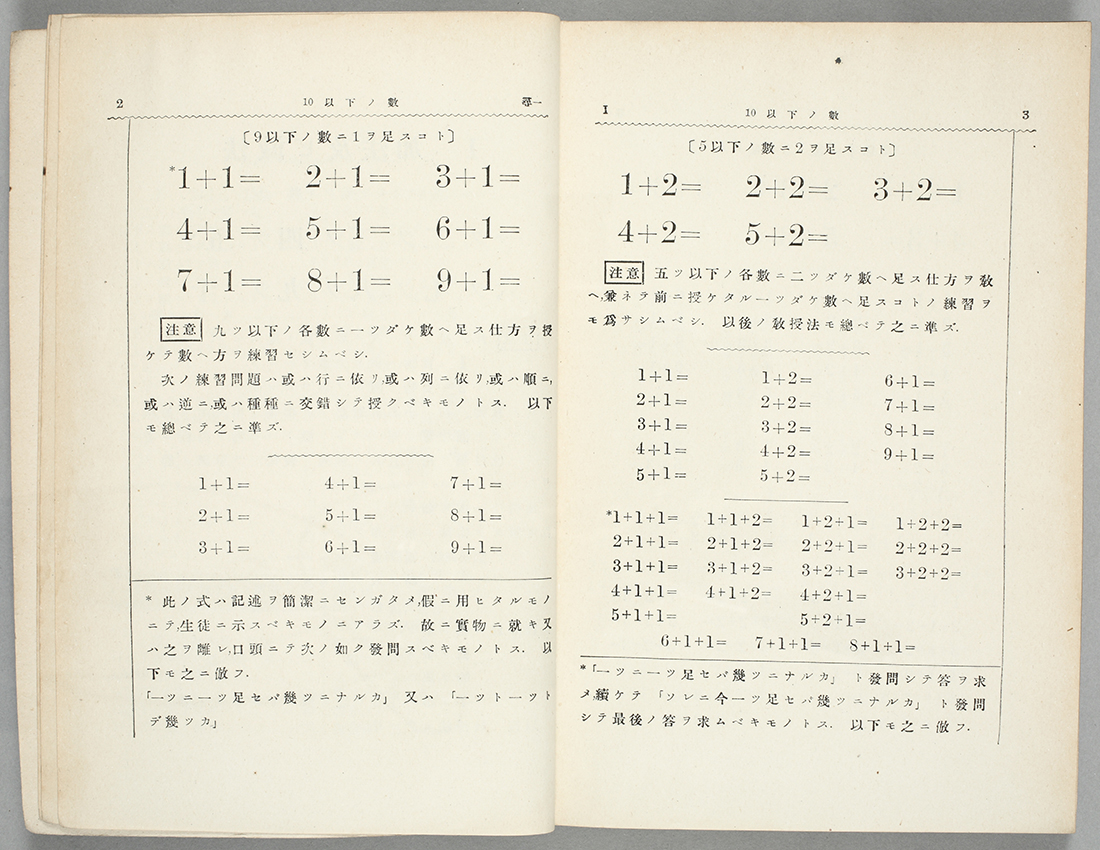 2 10 以下ノ數 尋一
〔9以下ノ數ニ1ヲ足スコト〕
*1+1= 2+1= 3+1=
4+1= 5+1= 6+1=
7+1= 8+1= 9+1=
注意 九ツ以下ノ各數ニ一ツダケ數ヘ足ス仕方ヲ授
ケテ數ヘ方ヲ練習セシムベシ.
次ノ練習問題ハ或ハ行ニ依リ,或ハ列ニ依リ,或ハ順ニ,
或ハ逆ニ,或ハ種種ニ交錯シテ授クベキモノトス. 以下
モ總ベテ之ニ準ズ.
1+1= 4+1= 7+1=
2+1= 5+1= 8+1=
3+1= 6+1= 9+1=
* 此ノ式ハ記述ヲ簡潔ニセンガタメ,假ニ用ヒタルモノ
ニテ,生徒ニ示スベキモノニアラズ. 故ニ實物ニ就キ又
ハ之ヲ離レ,口頭ニテ次ノ如ク發問スベキモノトス. 以
下モ之ニ倣フ.
「一ツニ一ツ足セバ幾ツニナルカ」 又ハ 「一ツト一ツト
デ幾ツカ」
I 10 以下ノ數 3
〔5以下ノ數ニ2ヲ足スコト〕
1+2= 2+2= 3+2=
4+2= 5+2=
注意 五ツ以下ノ各數ニ二ツダケ數ヘ足ス仕方ヲ敎
ヘ,兼ネテ前ニ授ケタル一ツダケ數ヘ足スコトノ練習ヲ
モ爲サシムベシ. 以後ノ敎授法モ總ベテ之ニ準ズ.
1+1= 1+2= 6+1=
2+1= 2+2= 7+1=
3+1= 3+2= 8+1=
4+1= 4+2= 9+1=
5+1= 5+2=
*1+1+1= 1+1+2= 1+2+1= 1+2+2=
2+1+1= 2+1+2= 2+2+1= 2+2+2=
3+1+1= 3+1+2= 3+2+1= 3+2+2=
4+1+1= 4+1+2= 4+2+1=
5+1+1= 5+2+1=
6+1+1= 7+1+1= 8+1+1=
*「一ツニ一ツ足セバ幾ツニナルカ」 ト發問シテ答ヲ求
メ,續ケテ 「ソレニ今一ツ足セバ幾ツニナルカ」 ト發問
シテ最後ノ答ヲ求ムベキモノトス. 以下モ之ニ倣フ.